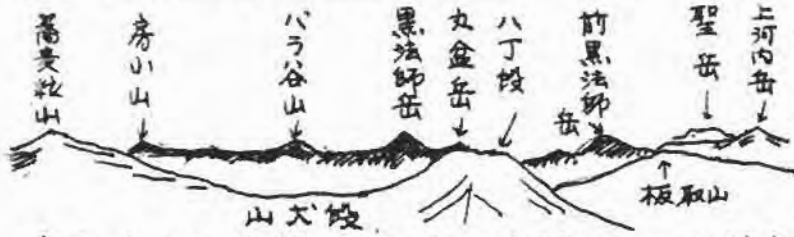 蕎麦粒山
房小山
バラ谷山
黒法師岳
丸盆岳
八丁段
前黒法師岳
聖岳
上河内岳
板取山
山犬段